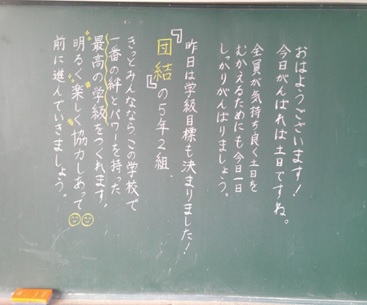 おはようございます!
今日がんばれば土日ですね。
全員が気持ち良く土日を
むかえるためにも今日一日
しっかりがんばりましょう。
昨日は学級目標も決まりました!
『団結』の5年2組、
きっとみんななら、この学校で
一番の絆とパワーを持った
最高の学級をつくれます。
明るく楽しく協力しあって
前に進んでいきましょう。